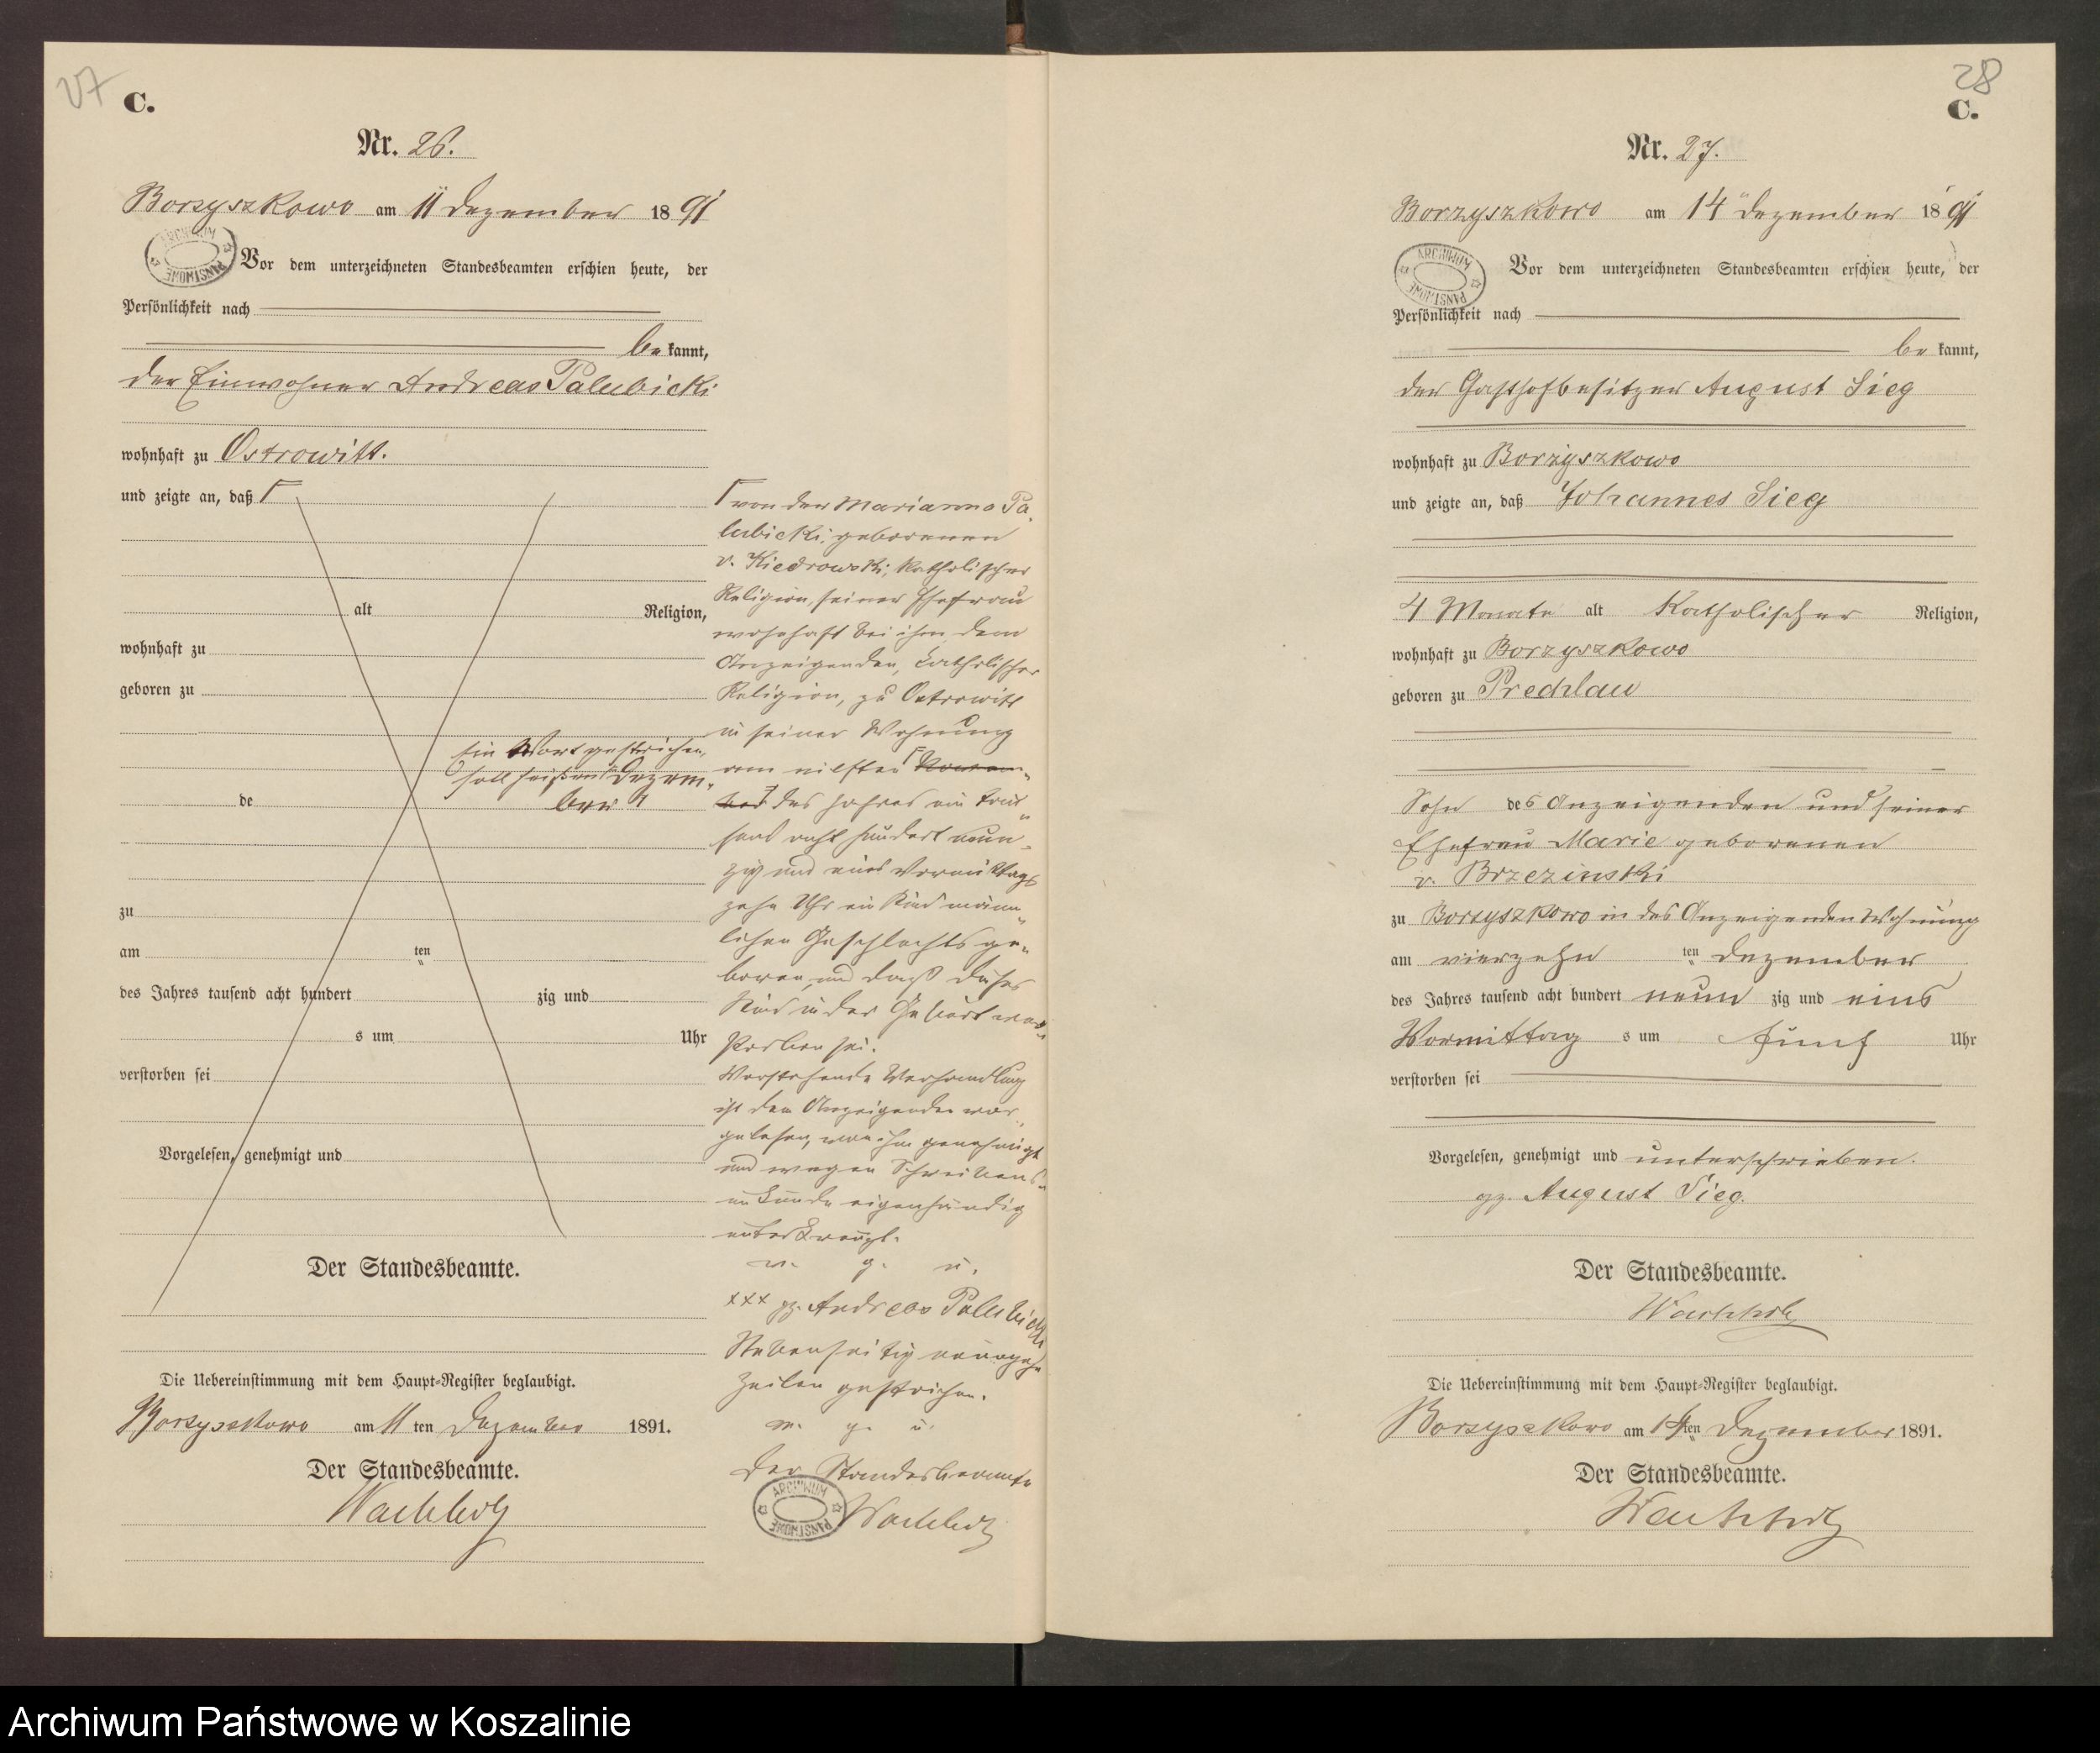 27
C.
Nr. 26.
Borzyszkowo am 11 Dezember 1891
ARCHIWUM PAŃSTWOWE
Vor dem unterzeichneten Standesbeamten erschien heute, der
Persönlichkeit nach
be kannt,
der Einwohner Andreas Palubicki
wohnhaft zu Ostrowitt.
und zeigte an, daß
alt Religion,
wohnhaft zu
geboren zu
Ein Wort gestrichen,
soll heißen "Dezem-
ber"
de
zu
am ten
des Jahres tausend acht hundert zig und
s um Uhr
verstorben sei
Vorgelesen, genehmigt und
Der Standesbeamte.
Die Uebereinstimmung mit dem Haupt-Register beglaubigt.
Borzyszkowo am 11 ten Dezember 1891.
Der Standesbeamte.
Wachholz
von der Marianna Pa-
lubicki, geborenen
v. Kiedrowski, katholischer
Religion, seiner Ehefrau
wohnhaft bei ihm, dem
Anzeigenden, katholischer
Religion, zu Ostrowitt
in seiner Wohnung
am elften Novem-
ber des Jahres ein tau-
send acht hundert neun-
zig und eins Vormittags
zehn Uhr ein Kind männ-
lichen Geschlechts ge-
boren, und daß dieses
Kind in der Geburt ver-
storben sei.
Vorstehende Verhandlung
ist dem Anzeigenden vor-
gelesen, von ihm genehmigt
und wegen Schreibens-
unkunde eigenhändig
unterkreuzt.
v. g. u.
+++ gz. Andreas Palubicki
Nebenseitig neunzehn
Zeilen gestrichen.
v. g. u.
Der Standesbeamte
ARCHIWUM PAŃSTWOWE
Wachholz
28
C.
Nr. 27.
Borzyszkowo am 14 Dezember 1891
ARCHIWUM PAŃSTWOWE
Vor dem unterzeichneten Standesbeamten erschien heute, der
Persönlichkeit nach
be kannt,
der Gasthofbesitzer August Sieg
wohnhaft zu Borzyszkowo
und zeigte an, daß Johannes Sieg
4 Monate alt katholischer Religion,
wohnhaft zu Borzyszkowo
geboren zu Prechlau
Sohn des Anzeigenden und seiner
Ehefrau Marie geborenen
v. Brzezinski
zu Borzyszkowo in des Anzeigenden Wohnung
am vierzehn ten Dezember
des Jahres tausend acht hundert neun zig und eins
Vormittag s um fünf Uhr
verstorben sei
Vorgelesen, genehmigt und unterschrieben.
gz. August Sieg.
Der Standesbeamte.
Wachholz
Die Uebereinstimmung mit dem Haupt-Register beglaubigt.
Borzyszkowo am 14 ten Dezember 1891.
Der Standesbeamte.
Wachholz
Archiwum Państwowe w Koszalinie